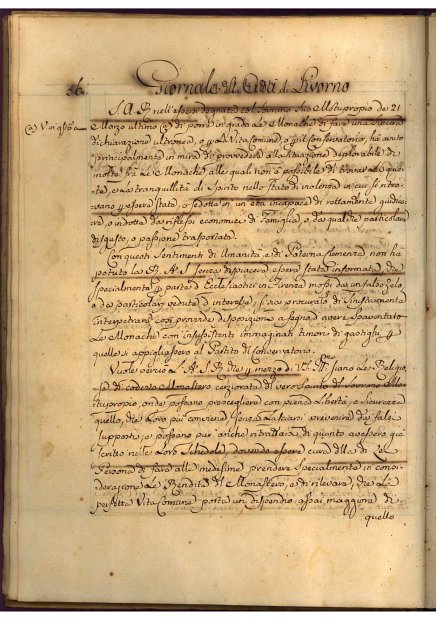 86. Giornale di Livorno
S. A. R. nell'essersi degnata col Sovrano Suo Motuproprio de 21
Marzo ultimo di porre in grado le Monache di fare una sincera
dichiarazione ultronea, o p la Vita Comune, o p il Conservatorio, ha avuto
principalmente in mira di provvedere alla Situazione deplorabile di
molte frà Le Monache alle quali non è possibile di trovare la quie-
te, e la tranquillità di Spirito nello Stato di violenza in cui si ritro-
vano p essere state, o sedotte in un età incapace di rettamente giudica-
re, o indotte da riflessi economici di Famiglia, o da qualche particolare
disgusto, o passione trasportate.
Con questi Sentimenti di Umanità, e di Paterna Clemenza non ha
potuto la R. A. S. senza dispiacere essere stata informata, che
specialmente p parte d Ecclesiastici in Firenze mossi da un falso Zelo,
o da particolari vedute d interesse, si sia procurato d'ingiustamente
interpetrare così provvide disposizioni a segno d avere spaventato
Le Monache con insussistenti immaginati timori di gastighi p
quelle si appigliassero al Partito di Conservatorio.
Vuole perciò la A. S. R. che p mezzo di V. S. siano le Religio-
se di codesto Monastero cerziorate di vero Spirito del Sovrano Mo-
tuproprio onde possano prescegliere con piena Libertà, e sicurezza
quello, che Loro più conviene senza Lasciarsi prevenire da falsi
supposti, e possano pur anche ritrattarsi di quanto avessero già
scritto nelle Loro Schedole, dovendo essere cura della di Lei
Persona di fare alle medesime prendere specialmente in consi-
derazione Le Rendite del Monastero, e di rilevare, che La
perfetta Vita Comune porta un dispendio assai maggiore di
quello